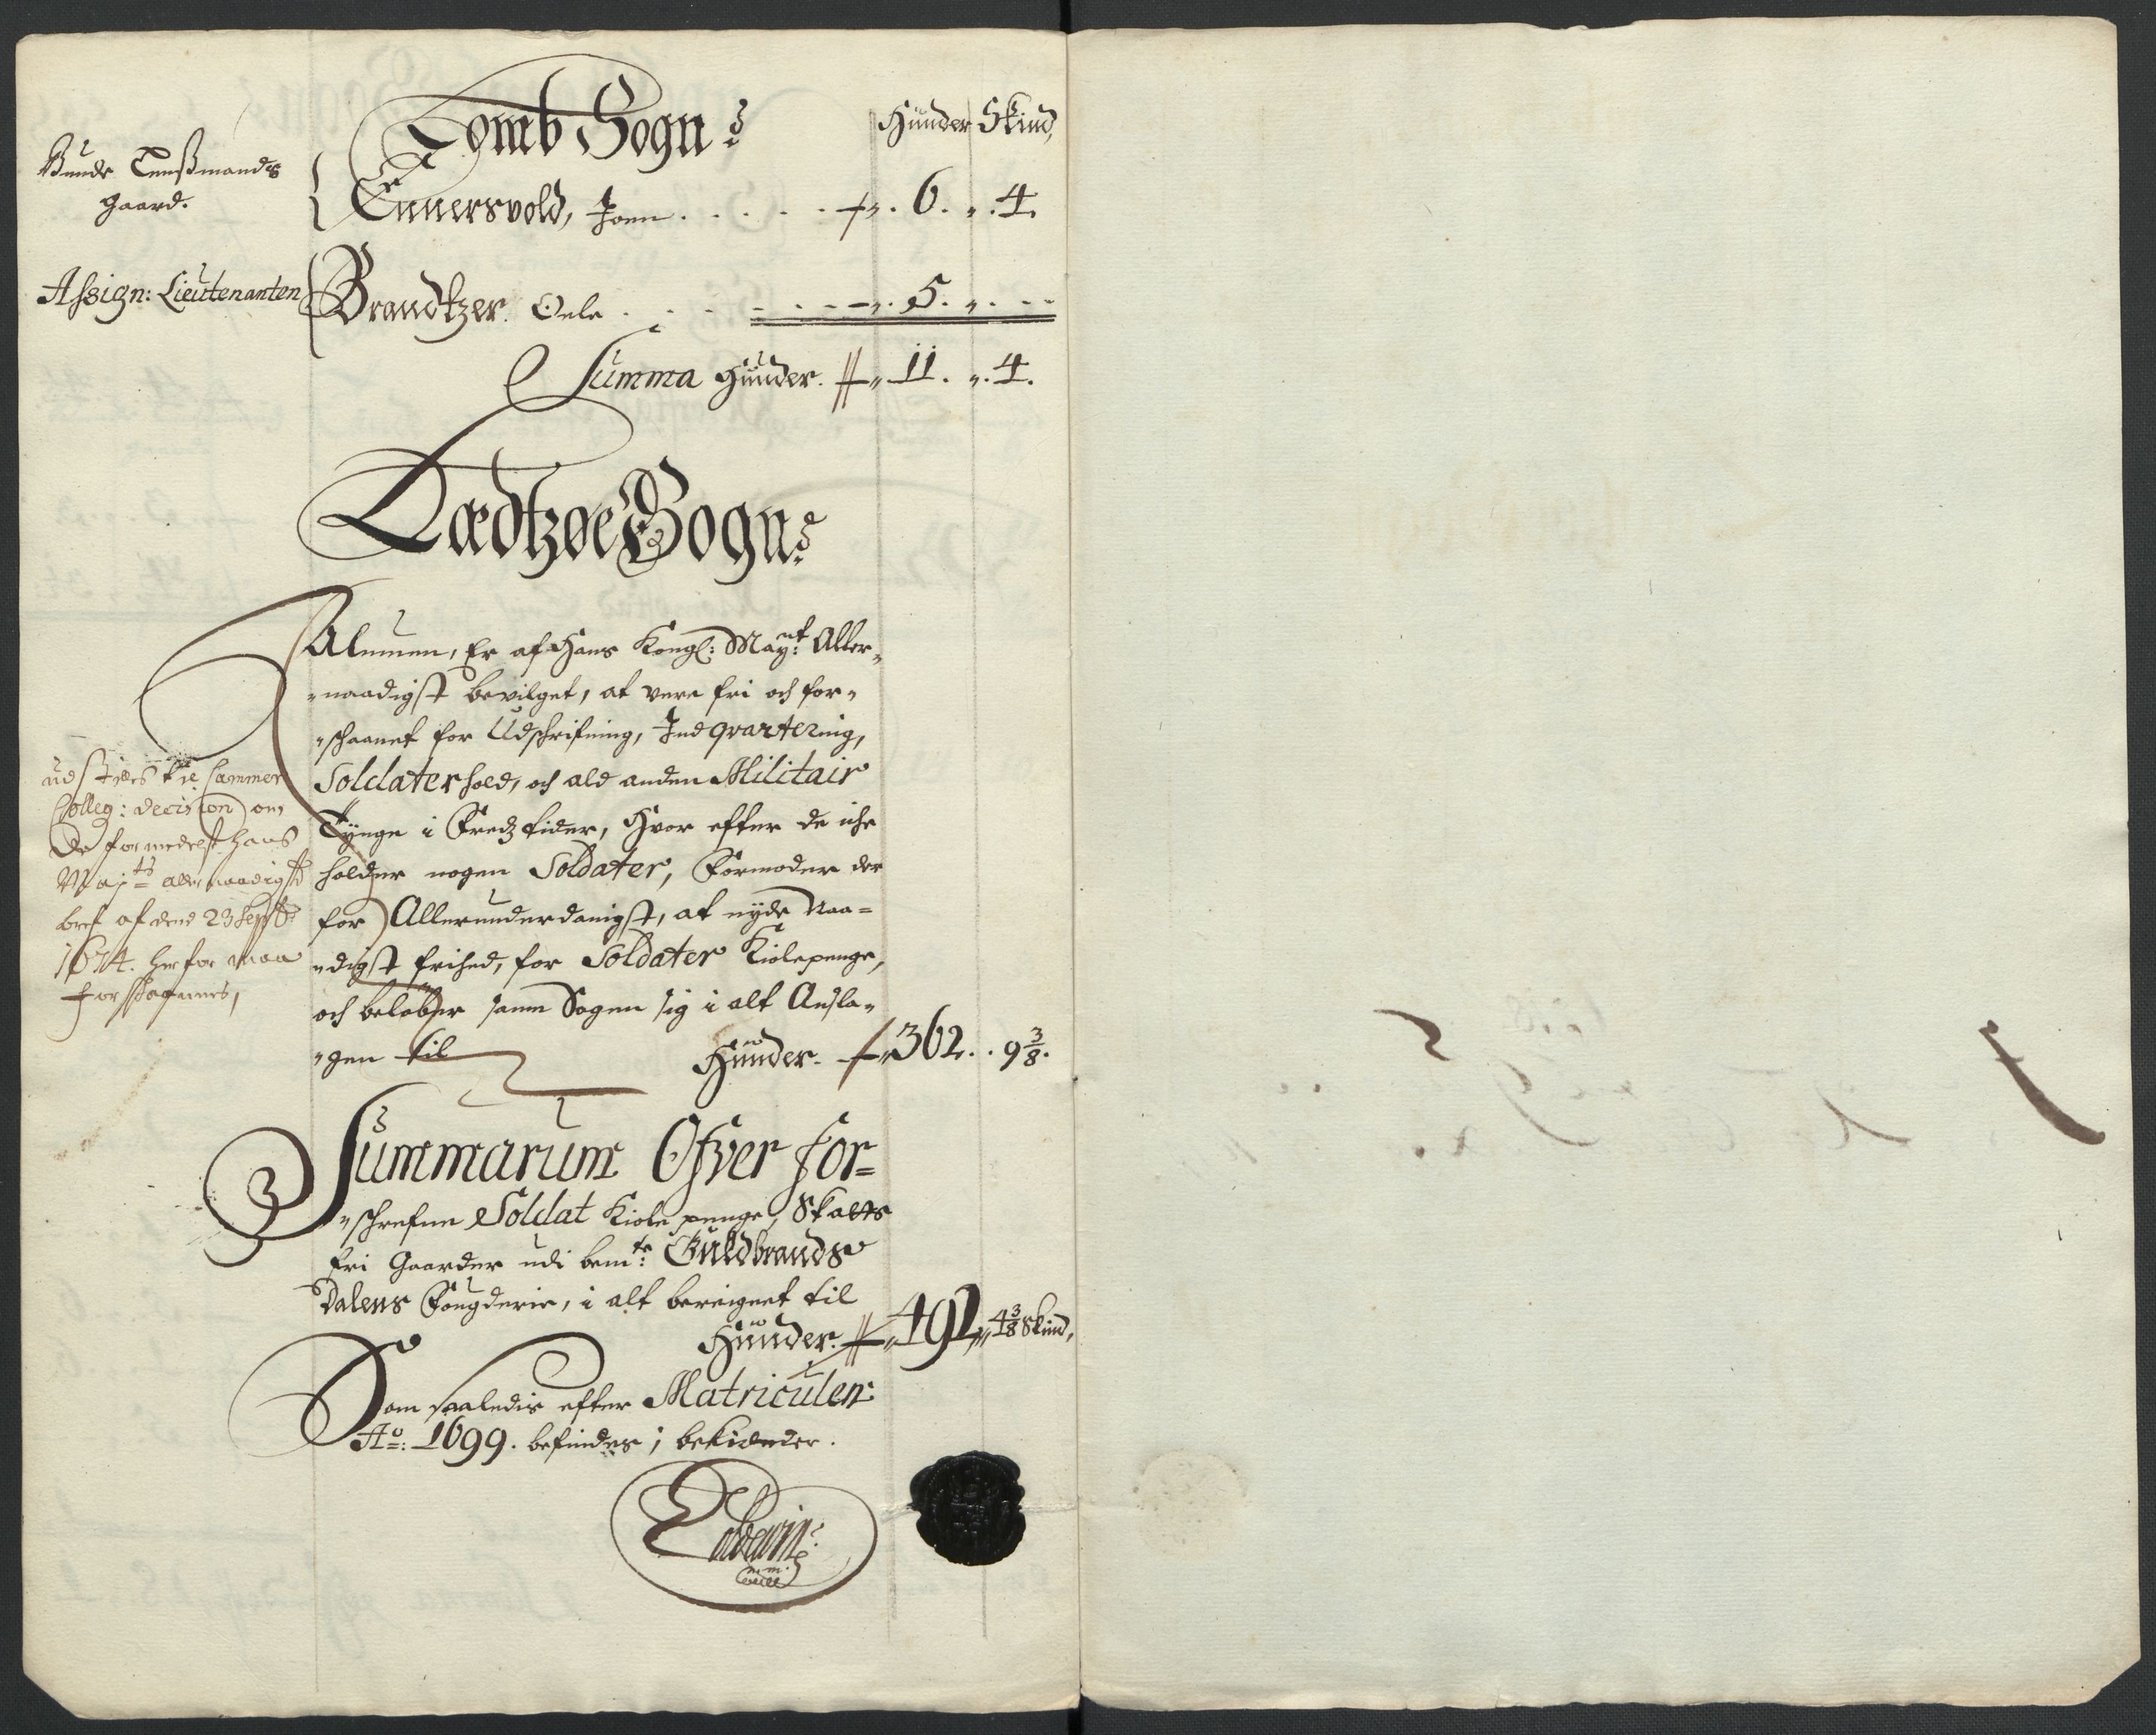 Tomb Sogn
Hunder Skind,
Bunde Lenßmands
gaard.
Ennersvold, Joen . . . . . 6. „ . 4.
Assign: Lieutenanten
Brandtzer. Oele . . . . 5. „ . - -
Summa Hunder. 11. „ . 4.
Sogn
Almuen, Er af Hans Kongl: Mayt: Aller„
„naadigst bevilget, at vere fri och for„
„schaanet for Udschrifning, Indqvartering,
Soldaterhold, och ald anden Militair
Tÿnge i Freds tider, Hvor efter de iche
holder nogen Soldater, Formoder der
for Allerunderdanigst, at nyde Naa=
„digst frihed, for Soldater Kiolepenge,
och beløber samme Sogen sig i alt Ansla„
„gen til Hunder. 362. . 9 3/8.
Cammer
Colleg: decision om
de formedelst hans
Majts allernaadigste
bref af dend 23 Septbr
1674. her for maa
forschaanes,
Summarum Ofver for=
„schrefne Soldat Kiole penge, Skatts
fri Gaarder udi bemte: Guldbrands
Dalens Fougderie, i alt beregnet til
Hunder. 491„ 4 3/8 Skind,
Som saaledis efter Matriculen
Ao: 1699. befindes, bekiender.